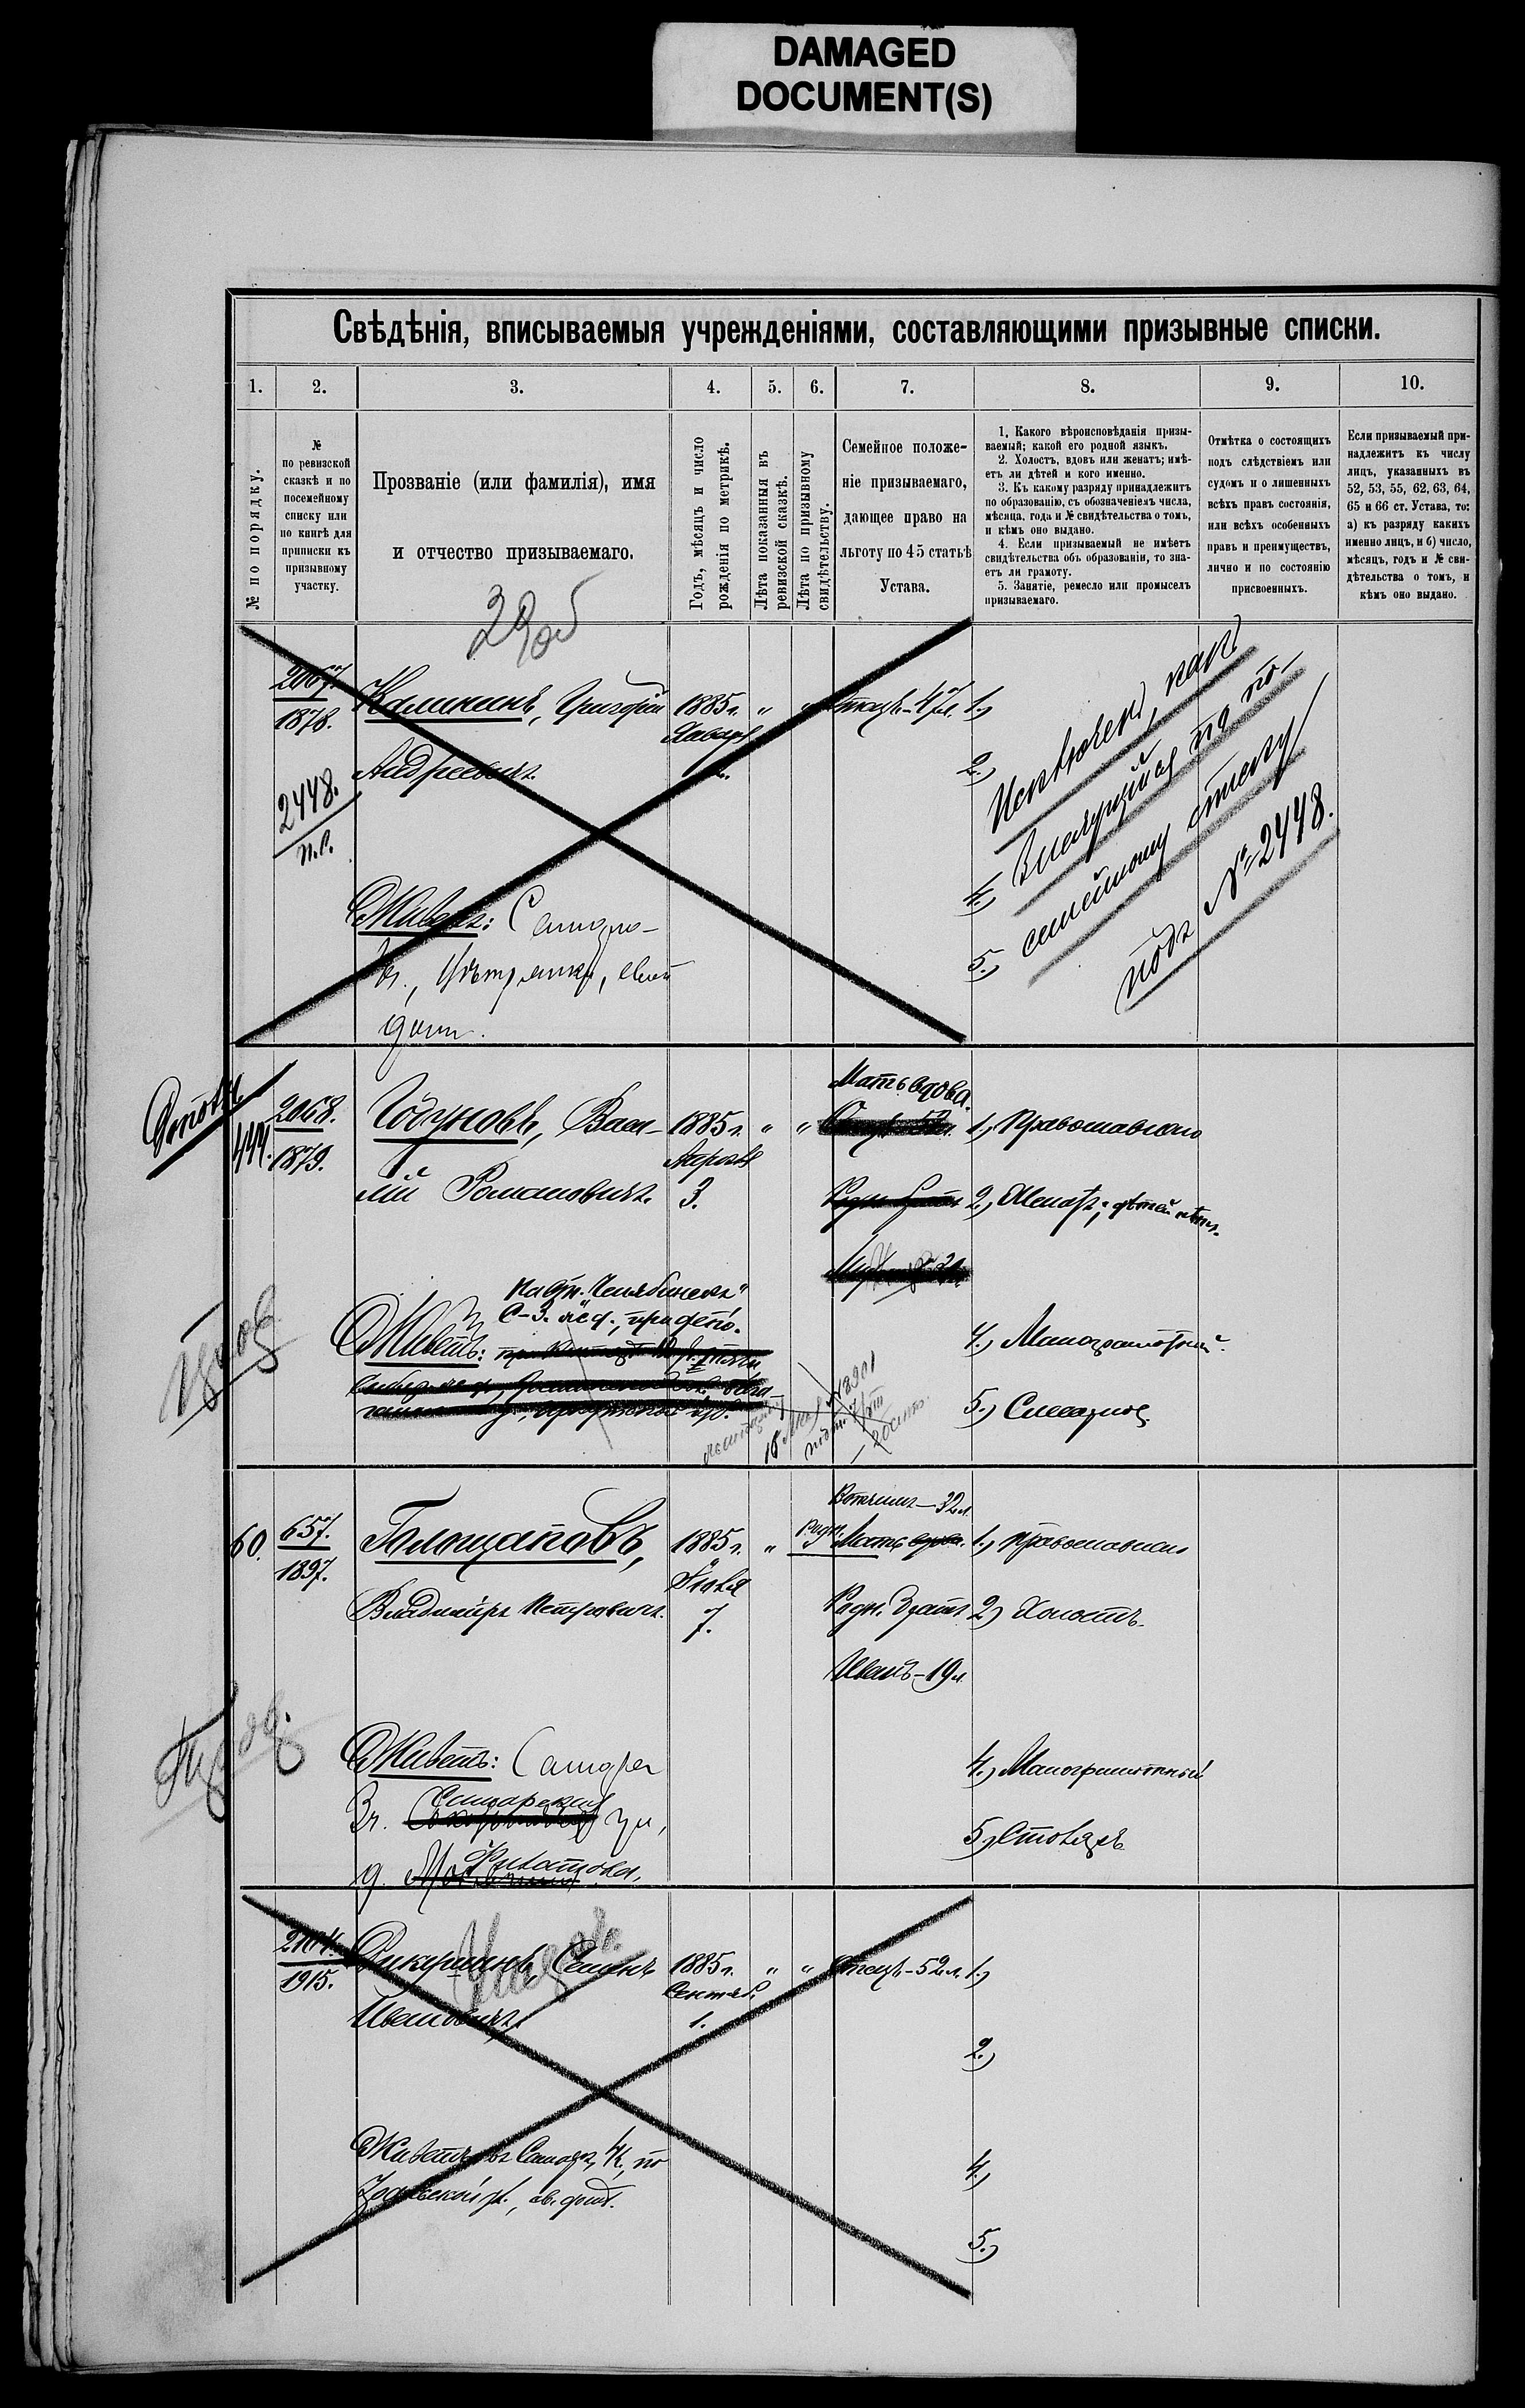 DAMAGED
DOCUMENT(S)
Свѣдѣнія, вписываемыя учрежденіями, составляющими призывные списки.
1. 2. 3. 4. 5. 6. 7. 8. 9. 10.
№ по порядку.
№
по ревизской
сказкѣ и по
посемейному
списку или
по книгѣ для
приписки къ
призывному
участку.
Прозваніе (или фамилія), имя
и отчество призываемаго.
Годъ, мѣсяцъ и число
рожденія по метрикѣ.
Лѣта показанныя въ
ревизской сказкѣ.
Лѣта по призывному
свидѣтельству.
Семейное положе-
ніе призываемаго,
дающее право на
льготу по 45 статьѣ
Устава.
1. Какого вѣроисповѣданія призы-
ваемый; какой его родной языкъ.
2. Холостъ, вдовъ или женатъ; имѣ-
етъ ли дѣтей и кого именно.
3. Къ какому разряду принадлежитъ
по образованію, съ обозначеніемъ числа,
мѣсяца, года и № свидѣтельства о томъ,
и кѣмъ оно выдано.
4. Если призываемый не имѣетъ
свидѣтельства объ образованіи, то зна-
етъ ли грамоту.
5. Занятіе, ремесло или промыселъ
призываемаго.
Отмѣтка о состоящихъ
подъ слѣдствіемъ или
судомъ и о лишенныхъ
всѣхъ правъ состоянія,
или всѣхъ особенныхъ
правъ и преимуществъ,
лично и по состоянію
присвоенныхъ.
Если призываемый при-
надлежитъ къ числу
лицъ, указанныхъ въ
52, 53, 55, 62, 63, 64,
65 и 66 ст. Устава, то:
а) къ разряду какихъ
именно лицъ, и б) число,
мѣсяцъ, годъ и № сви-
дѣтельства о томъ, и
кѣмъ оно выдано.
2067.
1878.
2448.
п.с.
Каликинъ, Григорій
Андреевичъ.
1885 г. " "
Январ
Отецъ-47 л.
1.)
2.)
4.)
5.)
Исключенъ, какъ
значущійся по по-
семейному списку
подъ № 2448.
Живетъ: Самаро-
свой
домъ.
2068.
1879.
Годуновъ, Васи-
лій Романовичъ.
1885 г. " "
Апрѣля
3.
Мать вдова.
1.) Православнаго
2.) Женатъ; дѣтей нѣтъ.
4.) Малограмотный.
5.) Слесарное.
на ст. "Челябинскъ"
С-З. ж. д., при депо.
Живетъ:
60.
657.
1897.
Голощаповъ,
Владиміръ Петровичъ.
1885 г. "
Іюля
7.
Вотчимъ-32 л.
родн. Мать вдова.
Родн. братъ
Иванъ-19 л.
1.) Православнаго
2.) Холостъ.
4.) Малограмотный
5.) Столяръ
Живетъ: Самара
Самарская ул,
д. Филатова.
1915.
Семенъ
Ивановичъ
1885 г. " "
Сентяб.
1.
Отецъ-52 л.
1.)
2.)
4.)
5.)
Живетъ: въ Самарѣ, по
св. домъ.